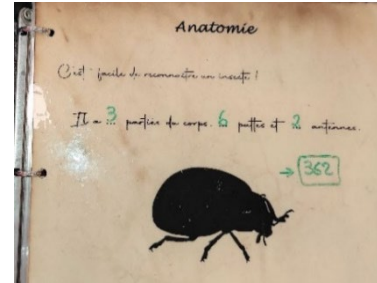 Anatomie
C'est facile de reconnaître un insecte !
Il a 3 parties du corps. 6 pattes et 2 antennes.
→ 362